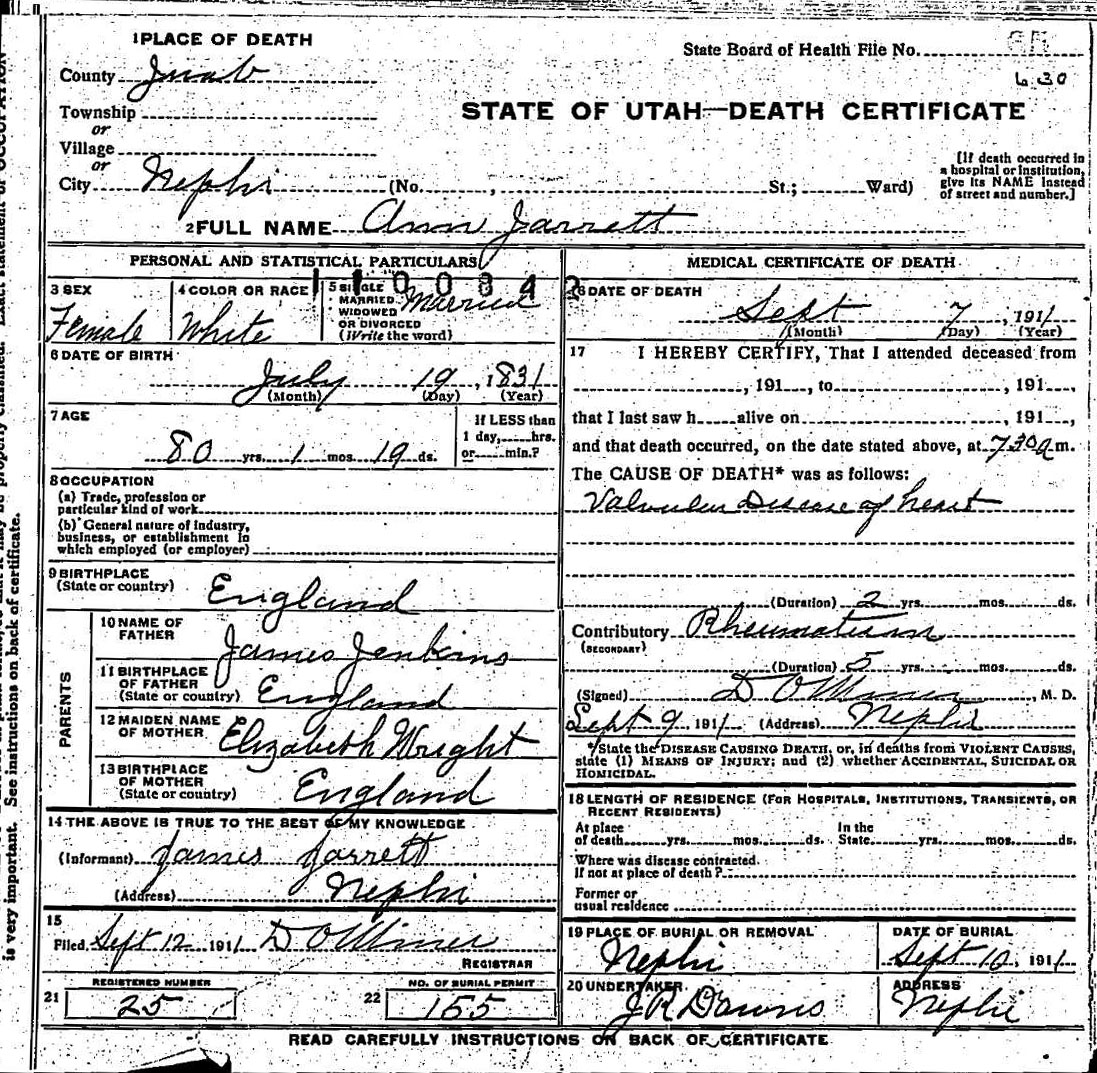 1 PLACE OF DEATH
State Board of Health File No.
County Juab
630
Township
or
Village
or
City Nephi (No. , St.; Ward)
STATE OF UTAH—DEATH CERTIFICATE
[If death occurred in
a hospital or institution,
give its NAME instead
of street and number.]
2 FULL NAME Ann Jarrett
PERSONAL AND STATISTICAL PARTICULARS
110034 2
3 SEX
Female
4 COLOR OR RACE
White
5 SINGLE
MARRIED
WIDOWED
OR DIVORCED
(Write the word)
Married
6 DATE OF BIRTH
July 19, 1831
(Month) (Day) (Year)
7 AGE
80 yrs. 1 mos. 19 ds.
If LESS than
1 day, hrs.
or min.?
8 OCCUPATION
(a) Trade, profession or
particular kind of work
(b) General nature of industry,
business, or establishment in
which employed (or employer)
9 BIRTHPLACE
(State or country)
England
PARENTS
10 NAME OF
FATHER
James Jenkins
11 BIRTHPLACE
OF FATHER
(State or country)
England
12 MAIDEN NAME
OF MOTHER
Elizabeth Wright
13 BIRTHPLACE
OF MOTHER
(State or country)
England
14 THE ABOVE IS TRUE TO THE BEST OF MY KNOWLEDGE
(Informant) James Jarrett
(Address) Nephi
15
Filed Sept 12 1911 D O Miner
REGISTRAR
REGISTERED NUMBER
21 25
NO. OF BURIAL PERMIT
22 155
MEDICAL CERTIFICATE OF DEATH
DATE OF DEATH
Sept 7, 1911
(Month) (Day) (Year)
17 I HEREBY CERTIFY, That I attended deceased from
, 191 , to , 191 ,
that I last saw h alive on , 191 ,
and that death occurred, on the date stated above, at 730a m.
The CAUSE OF DEATH* was as follows:
Valvular Disease of heart
(Duration) 2 yrs. mos. ds.
Contributory Rheumatism
(SECONDARY)
(Duration) 5 yrs. mos. ds.
(Signed) D O Miner, M. D.
Sept 9 1911 (Address) Nephi
*State the DISEASE CAUSING DEATH, or, in deaths from VIOLENT CAUSES,
state (1) MEANS OF INJURY; and (2) whether ACCIDENTAL, SUICIDAL OR
HOMICIDAL.
18 LENGTH OF RESIDENCE (FOR HOSPITALS, INSTITUTIONS, TRANSIENTS, OR
RECENT RESIDENTS)
At place
of death yrs. mos. ds.
In the
State yrs. mos. ds.
Where was disease contracted.
If not at place of death?
Former or
usual residence
19 PLACE OF BURIAL OR REMOVAL
Nephi
DATE OF BURIAL
Sept 10, 1911
20 UNDERTAKER
J R Downs
ADDRESS
Nephi
READ CAREFULLY INSTRUCTIONS ON BACK OF CERTIFICATE
is very important. See instructions on back of certificate.